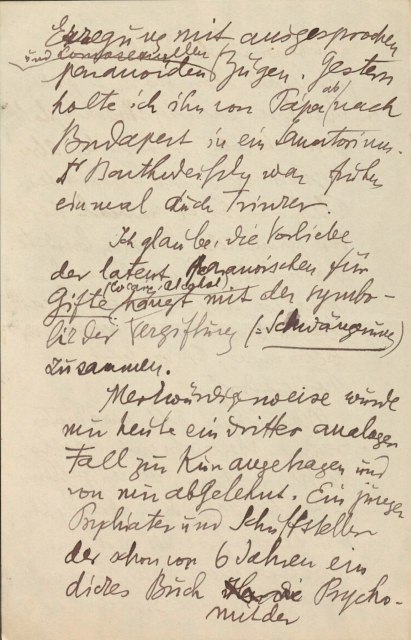 Erregung mit ausgesprochen
und homosexuellen
paranoiden Zügen. Gestern
holte ich ihn von Pápa ab/nach
Budapest in ein Sanatorium.
war früher
einmal auch Trinker.
Ich glaube, die Vorliebe
der latent Paranoischen für
Gifte hängt mit der Symbo-
lik der Vergiftung (= Schwängerung)
zusammen.
Merkwürdigerweise wurde
mir heute ein dritter analoger
Fall zur Kur angetragen und
von mir abgelehnt. Ein junger
Psychiater und Schriftsteller
der schon vor 6 Jahren ein
dickes Buch Psycho-
mit der